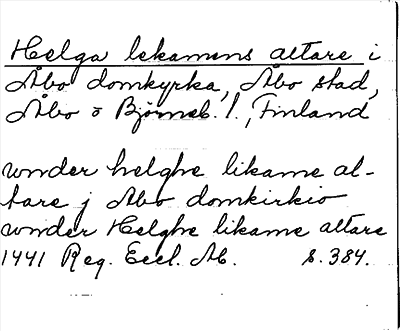 Helga lekamens altare i
Åbo domkyrka, Åbo stad,
Åbo o Björneb. l., Finland
wnder helghe likame al-
tare j Abo domkirkio
wnder Helghe likame altare
1441 Reg. Eccl. Ab. s. 384.